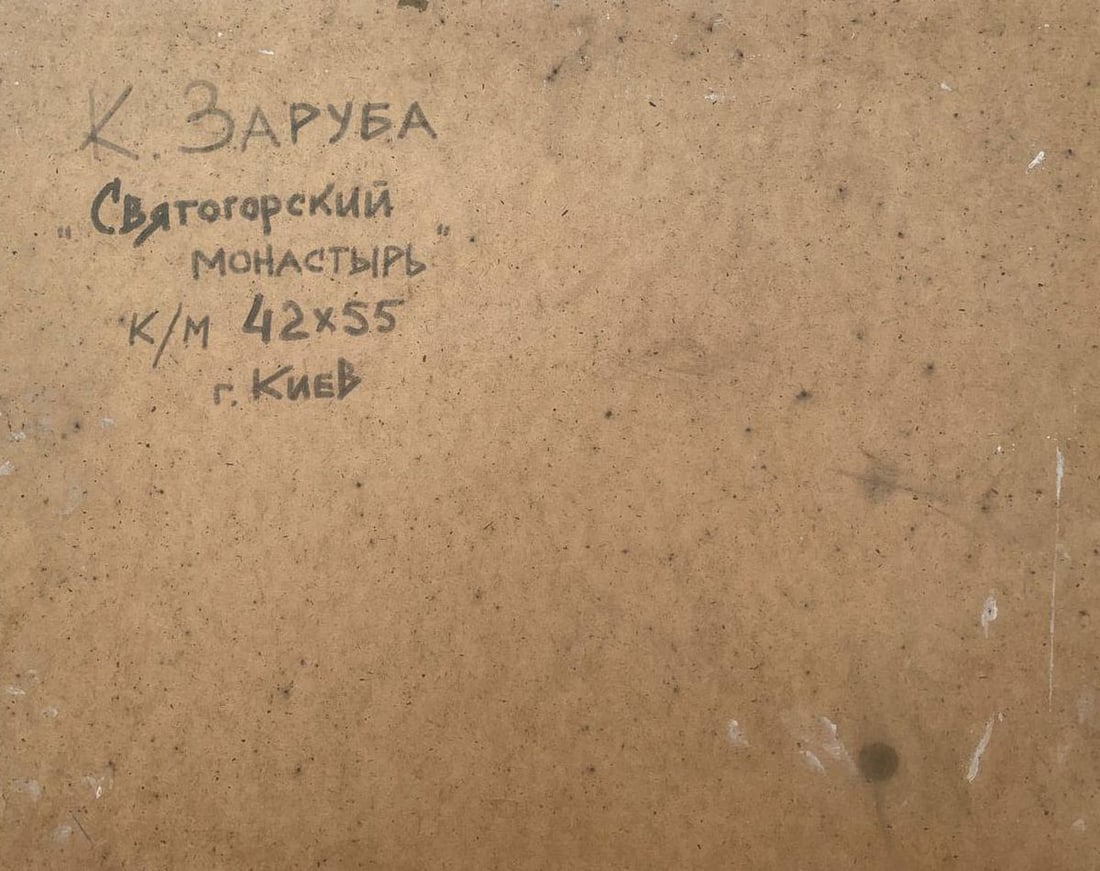 К. ЗАРУБА
"Святогорский
МОНАСТЫРЬ"
К/М 42х55
г. КИЕВ